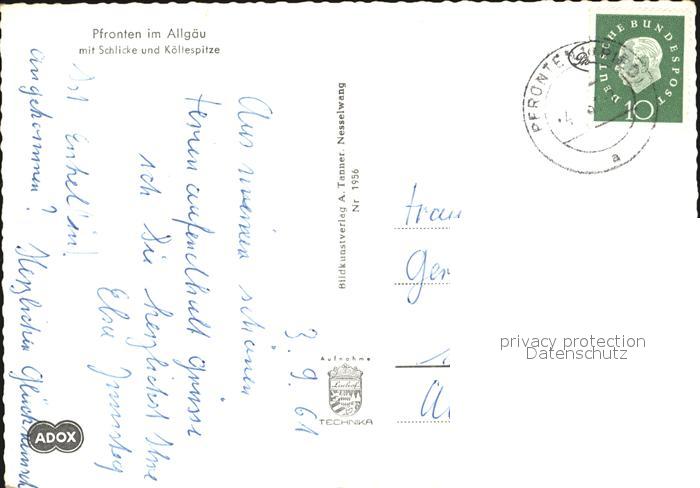 Pfronten im Allgäu
mit Schlicke und Köllespitze
3. 9. 61
Aus meinem schönen
Ferienaufenthalt grüsse
ich Sie herzlichst Ihre
Elsa
Ist Enkel'in!
angekommen? Herzlichen Glückwunsch
ADOX
Bildkunstverlag A. Tanner. Nesselwang
Nr 1956
Aufnahme
Linhof
TECHNIKA
DEUTSCHE BUNDESPOST
10
PFRONTEN
a
Frau
privacy protection
Datenschutz